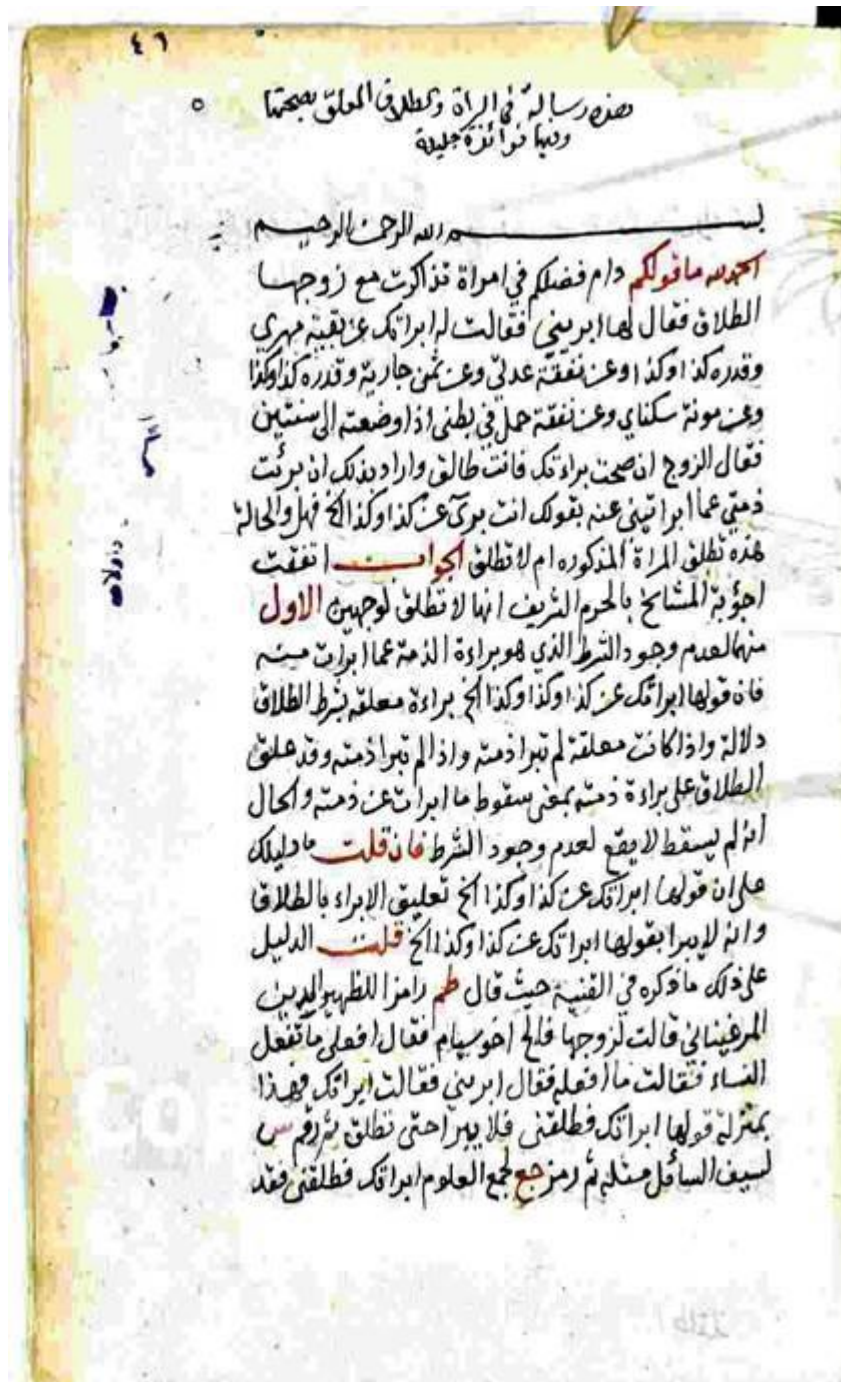 ٤٦
هذه رسالة في البراة والطلاق المعلق بصحتها
وفيها فوائد جليلة
بسم الله الرحمن الرحيم
الحمد لله ما قولكم دام فضلكم في امراة تذاكرت مع زوجها
الطلاق فقال لها ابريني فقالت له ابراتك عن بقية مهري
وقدره كذا وكذا وعن نفقة عدتي وعن ثمن جارية وقدره كذا وكذا
وعن مونة سكناي وعن نفقة حمل في بطني اذا وضعته الى سنتين
فقال الزوج ان صحت براءتك فانت طالق واراد بذلك ان برئت
ذمتي عما ابراتيني عنه بقولك انت برئ عن كذا وكذا الخ فهل والحالة
هذه تطلق المراة المذكوره ام لا تطلق الجواب اتفقت
اجوبة المشائخ بالحرم الشريف انها لا تطلق لوجهين الاول
منهما لعدم وجود الشرط الذي هو براءة الذمة عما ابرات منه
فان قولها ابراتك عن كذا وكذا وكذا الخ براءة معلقة بشرط الطلاق
دلالة واذا كانت معلقة لم تبرا ذمته واذا لم تبرا ذمته وقد علق
الطلاق على براءة ذمته بمعنى سقوط ما ابرات عن ذمته والحال
انه لم يسقط لا يقع لعدم وجود الشرط فان قلت ما دليلك
على ان قولها ابراتك عن كذا وكذا الخ تعليق الابراء بالطلاق
وانه لا يبرا بقولها ابراتك عن كذا وكذا الخ قلت الدليل
على ذلك ما ذكره في القنية حيث قال طم رامزا للظهير الدين
المرغيناني قالت لزوجها فقال افعلي ما تفعل
النساء فقالت ما افعله فقال ابريني فقالت ابراتك فهذا
بمنزلة قولها ابراتك فطلقني فلا يبرا حتى تطلق ثم رقم س
لسيف السائل مثله ثم رمز جع لجمع العلوم ابراتك فطلقني فقد